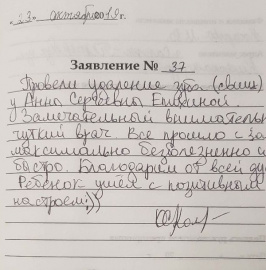 «23» октября 2019г.
Заявление № 37
Провели удаление зуба (свищ)
у Анны Сергеевны
Замечательный внимательн
чуткий врач. Все прошло с за
максимально безболезненно и
быстро. Благодарим от всей ду
Ребенок ушёл с позитивным
настроем:))